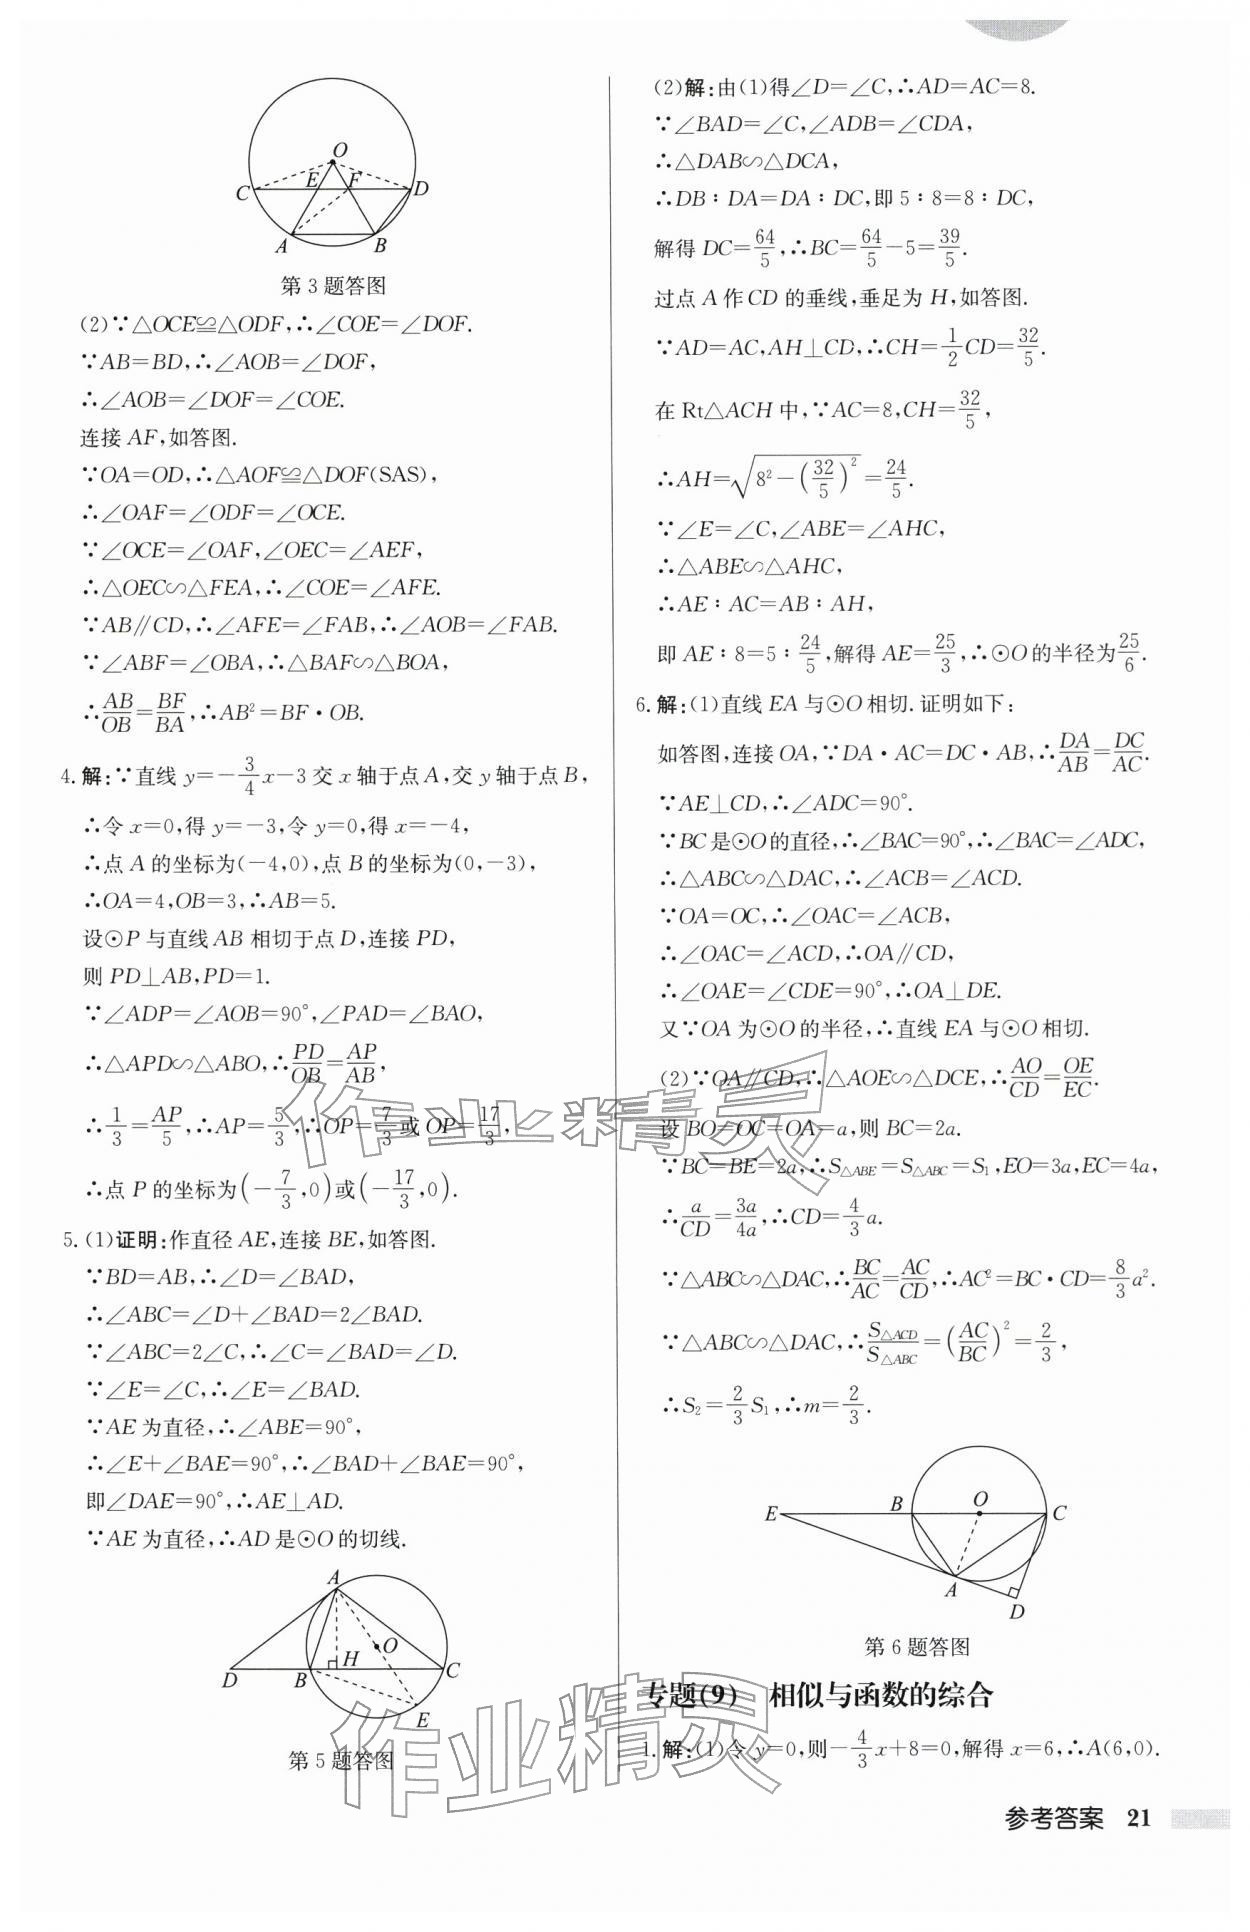 O
E
F
C
D
A
B
第3题答图
(2)∵△OCE≌△ODF,∴∠COE=∠DOF.
∵AB=BD,∴∠AOB=∠DOF,
∴∠AOB=∠DOF=∠COE.
连接 AF,如答图.
∵OA=OD,∴△AOF≌△DOF(SAS),
∴∠OAF=∠ODF=∠OCE.
∵∠OCE=∠OAF,∠OEC=∠AEF,
∴△OEC∽△FEA,∴∠COE=∠AFE.
∵AB∥CD,∴∠AFE=∠FAB,∴∠AOB=∠FAB.
∵∠ABF=∠OBA,∴△BAF∽△BOA,
∴AB/OB=BF/BA,∴AB²=BF·OB.
4.解:∵直线 y=-3/4x-3交 x 轴于点A,交 y 轴于点B,
∴令 x=0,得 y=-3,令 y=0,得 x=-4,
∴点 A 的坐标为(-4,0),点 B的坐标为(0,-3),
∴OA=4,OB=3,∴AB=5.
设⊙P 与直线AB 相切于点 D,连接 PD,
则 PD⊥AB,PD=1.
∵∠ADP=∠AOB=90°,∠PAD=∠BAO,
∴△APD∽△ABO,∴PD/OB=AP/AB,
∴1/3=AP/5,∴AP=5/3,∴OP=7/3或 OP=17/3,
∴点 P 的坐标为(-7/3,0)或(-17/3,0).
5.(1)证明:作直径 AE,连接 BE,如答图.
∵BD=AB,∴∠D=∠BAD,
∴∠ABC=∠D+∠BAD=2∠BAD.
∵∠ABC=2∠C,∴∠C=∠BAD=∠D.
∵∠E=∠C,∴∠E=∠BAD.
∵AE 为直径,∴∠ABE=90°,
∴∠E+∠BAE=90°,∴∠BAD+∠BAE=90°,
即∠DAE=90°,∴AE⊥AD.
∵AE 为直径,∴AD 是⊙O 的切线.
A
O
H
D
B
C
E
第5题答图
(2)解:由(1)得∠D=∠C,∴AD=AC=8.
∵∠BAD=∠C,∠ADB=∠CDA,
∴△DAB∽△DCA,
∴DB∶DA=DA∶DC,即 5∶8=8∶DC,
解得 DC=64/5,∴BC=64/5-5=39/5.
过点 A 作CD 的垂线,垂足为 H,如答图.
∵AD=AC,AH⊥CD,∴CH=1/2CD=32/5.
在 Rt△ACH 中,∵AC=8,CH=32/5,
∴AH=√(8²-(32/5)²)=24/5.
∵∠E=∠C,∠ABE=∠AHC,
∴△ABE∽△AHC,
∴AE∶AC=AB∶AH,
即 AE∶8=5∶24/5,解得 AE=25/3,∴⊙O 的半径为25/6.
6.解:(1)直线 EA 与⊙O 相切.证明如下:
如答图,连接 OA,∵DA·AC=DC·AB,∴DA/AB=DC/AC.
∵AE⊥CD,∴∠ADC=90°.
∵BC是⊙O的直径,∴∠BAC=90°,∴∠BAC=∠ADC,
∴△ABC∽△DAC,∴∠ACB=∠ACD.
∵OA=OC,∴∠OAC=∠ACB,
∴∠OAC=∠ACD,∴OA∥CD,
∴∠OAE=∠CDE=90°,∴OA⊥DE.
又∵OA 为⊙O 的半径,∴直线 EA 与⊙O 相切.
(2)∵OA∥CD,∴△AOE∽△DCE,∴AO/CD=OE/EC.
设 BO=OC=OA=a,则 BC=2a.
∵BC=BE=2a,∴S△ABE=S△ABC=S₁,EO=3a,EC=4a,
∴a/CD=3a/4a,∴CD=4/3a.
∵△ABC∽△DAC,∴BC/AC=AC/CD,∴AC²=BC·CD=8/3a².
∵△ABC∽△DAC,∴S△ACD/S△ABC=(AC/BC)²=2/3,
∴S₂=2/3S₁,∴m=2/3.
E
B
O
C
A
D
第6题答图
专题(9) 相似与函数的综合
1.解:(1)令 y=0,则-4/3x+8=0,解得 x=6,∴A(6,0).
参考答案 21
作业精灵
作业精灵